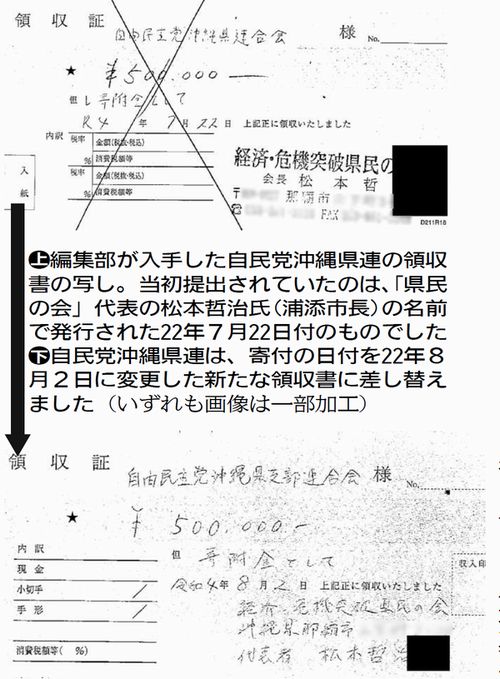 領収証
自由民主党沖縄県連合会 様
No.
★ ¥500.000―
但し寄附金として
R4年7月22日 上記正に領収いたしました
内訳
税率 金額(税抜・税込)
% 消費税額等
税率 金額(税抜・税込)
% 消費税額等
経済・危機突破県民の
会長 松本哲
〒
那覇市
☎ FAX
D211R18
入
紙
上編集部が入手した自民党沖縄県連の領収
書の写し。当初提出されていたのは、「県民
の会」代表の松本哲治氏(浦添市長)の名前
で発行された22年7月22日付のものでした
下自民党沖縄県連は、寄付の日付を22年8
月2日に変更した新たな領収書に差し替え
ました(いずれも画像は一部加工)
領収証
自由民主党沖縄県支部連合会 様
No.
★ ¥500.000.-
内訳
現金
小切手
手形
消費税額等( %)
但 寄附金として
令和4年8月2日 上記正に領収いたしました
収入印
経済・危機突破県民の会
沖縄県那覇市
代表者 松本哲治